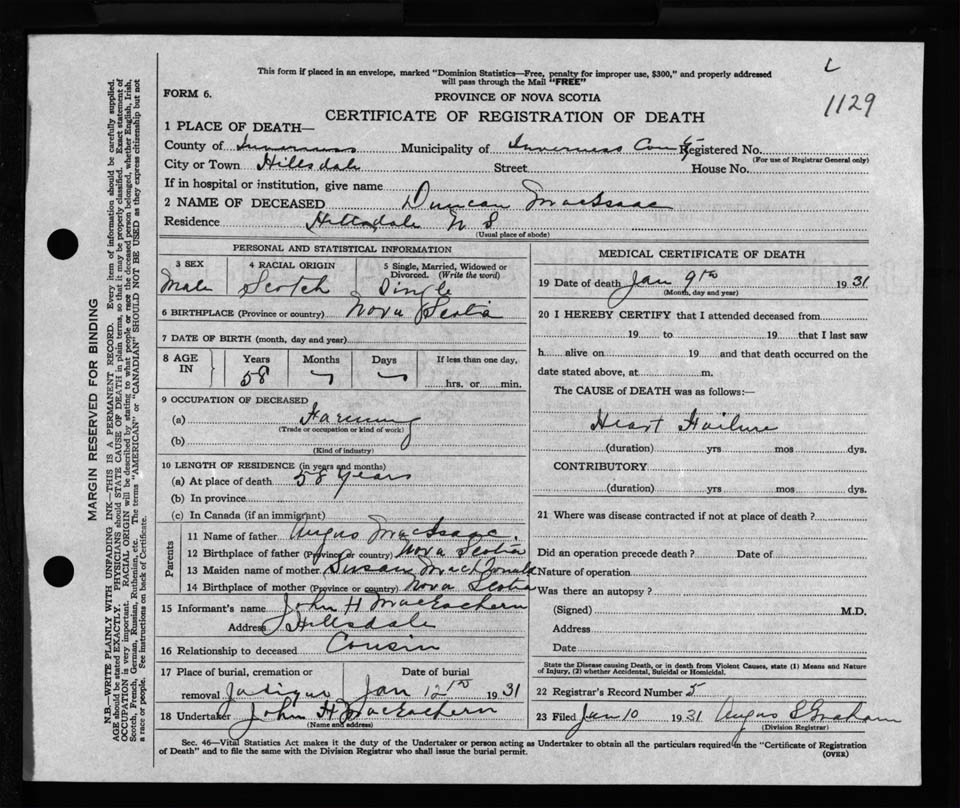 L
1129
This form if placed in an envelope, marked "Dominion Statistics—Free, penalty for improper use, $300," and properly addressed
will pass through the Mail "FREE"
FORM 6.
PROVINCE OF NOVA SCOTIA
CERTIFICATE OF REGISTRATION OF DEATH
1 PLACE OF DEATH—
County of Inverness Municipality of Inverness County Registered No.
(For use of Registrar General only)
City or Town Hillsdale Street House No.
If in hospital or institution, give name
2 NAME OF DECEASED Duncan MacIsaac
Residence Hillsdale N S
(Usual place of abode)
PERSONAL AND STATISTICAL INFORMATION
3 SEX 4 RACIAL ORIGIN 5 Single, Married, Widowed or
Divorced. (Write the word)
Male Scotch Single
6 BIRTHPLACE (Province or country) Nova Scotia
7 DATE OF BIRTH (month, day and year)
8 AGE IN Years Months Days If less than one day,
58 hrs. or min.
9 OCCUPATION OF DECEASED
(a) Farming
(Trade or occupation or kind of work)
(b)
(Kind of industry)
10 LENGTH OF RESIDENCE (in years and months)
(a) At place of death 58 Years
(b) In province
(c) In Canada (if an immigrant)
Parents
11 Name of father Angus MacIsaac.
12 Birthplace of father (Province or country) Nova Scotia
13 Maiden name of mother Susan MacDonald
14 Birthplace of mother (Province or country) Nova Scotia
15 Informant's name John H MacEachern
Address Hillsdale
16 Relationship to deceased Cousin
17 Place of burial, cremation or Date of burial
removal Judique Jan 12th 1931
18 Undertaker John H MacEachern
(Name and address)
MEDICAL CERTIFICATE OF DEATH
19 Date of death Jan 9th 1931
(Month, day and year)
20 I HEREBY CERTIFY that I attended deceased from
19 to 19 that I last saw
h alive on 19 and that death occurred on the
date stated above, at m.
The CAUSE of DEATH was as follows:—
Heart Failure
(duration) yrs mos dys.
CONTRIBUTORY
(duration) yrs mos dys.
21 Where was disease contracted if not at place of death ?
Did an operation precede death ? Date of
Nature of operation
Was there an autopsy ?
(Signed) M.D.
Address
Date
State the Disease causing Death, or in death from Violent Causes, state (1) Means and Nature
of Injury, (2) whether Accidental, Suicidal or Homicidal.
22 Registrar's Record Number 5
23 Filed Jan 10 1931 Angus S Graham
(Division Registrar)
Sec. 46—Vital Statistics Act makes it the duty of the Undertaker or person acting as Undertaker to obtain all the particulars required in the "Certificate of Registration
of Death" and to file the same with the Division Registrar who shall issue the burial permit. (OVER)
MARGIN RESERVED FOR BINDING
N.B.—WRITE PLAINLY WITH UNFADING INK—THIS IS A PERMANENT RECORD. Every item of information should be carefully supplied.
AGE should be stated EXACTLY. PHYSICIANS should STATE CAUSE OF DEATH in plain terms, so that it may be properly classified. Exact statement of
OCCUPATION is very important. RACIAL ORIGIN will be described by stating to what people or race the deceased person belonged, whether English, Irish,
Scotch, French, German, Russian, Ruthenian, etc. The terms "AMERICAN" or "CANADIAN" SHOULD NOT BE USED as they express citizenship but not
a race or people. See instructions on back of Certificate.